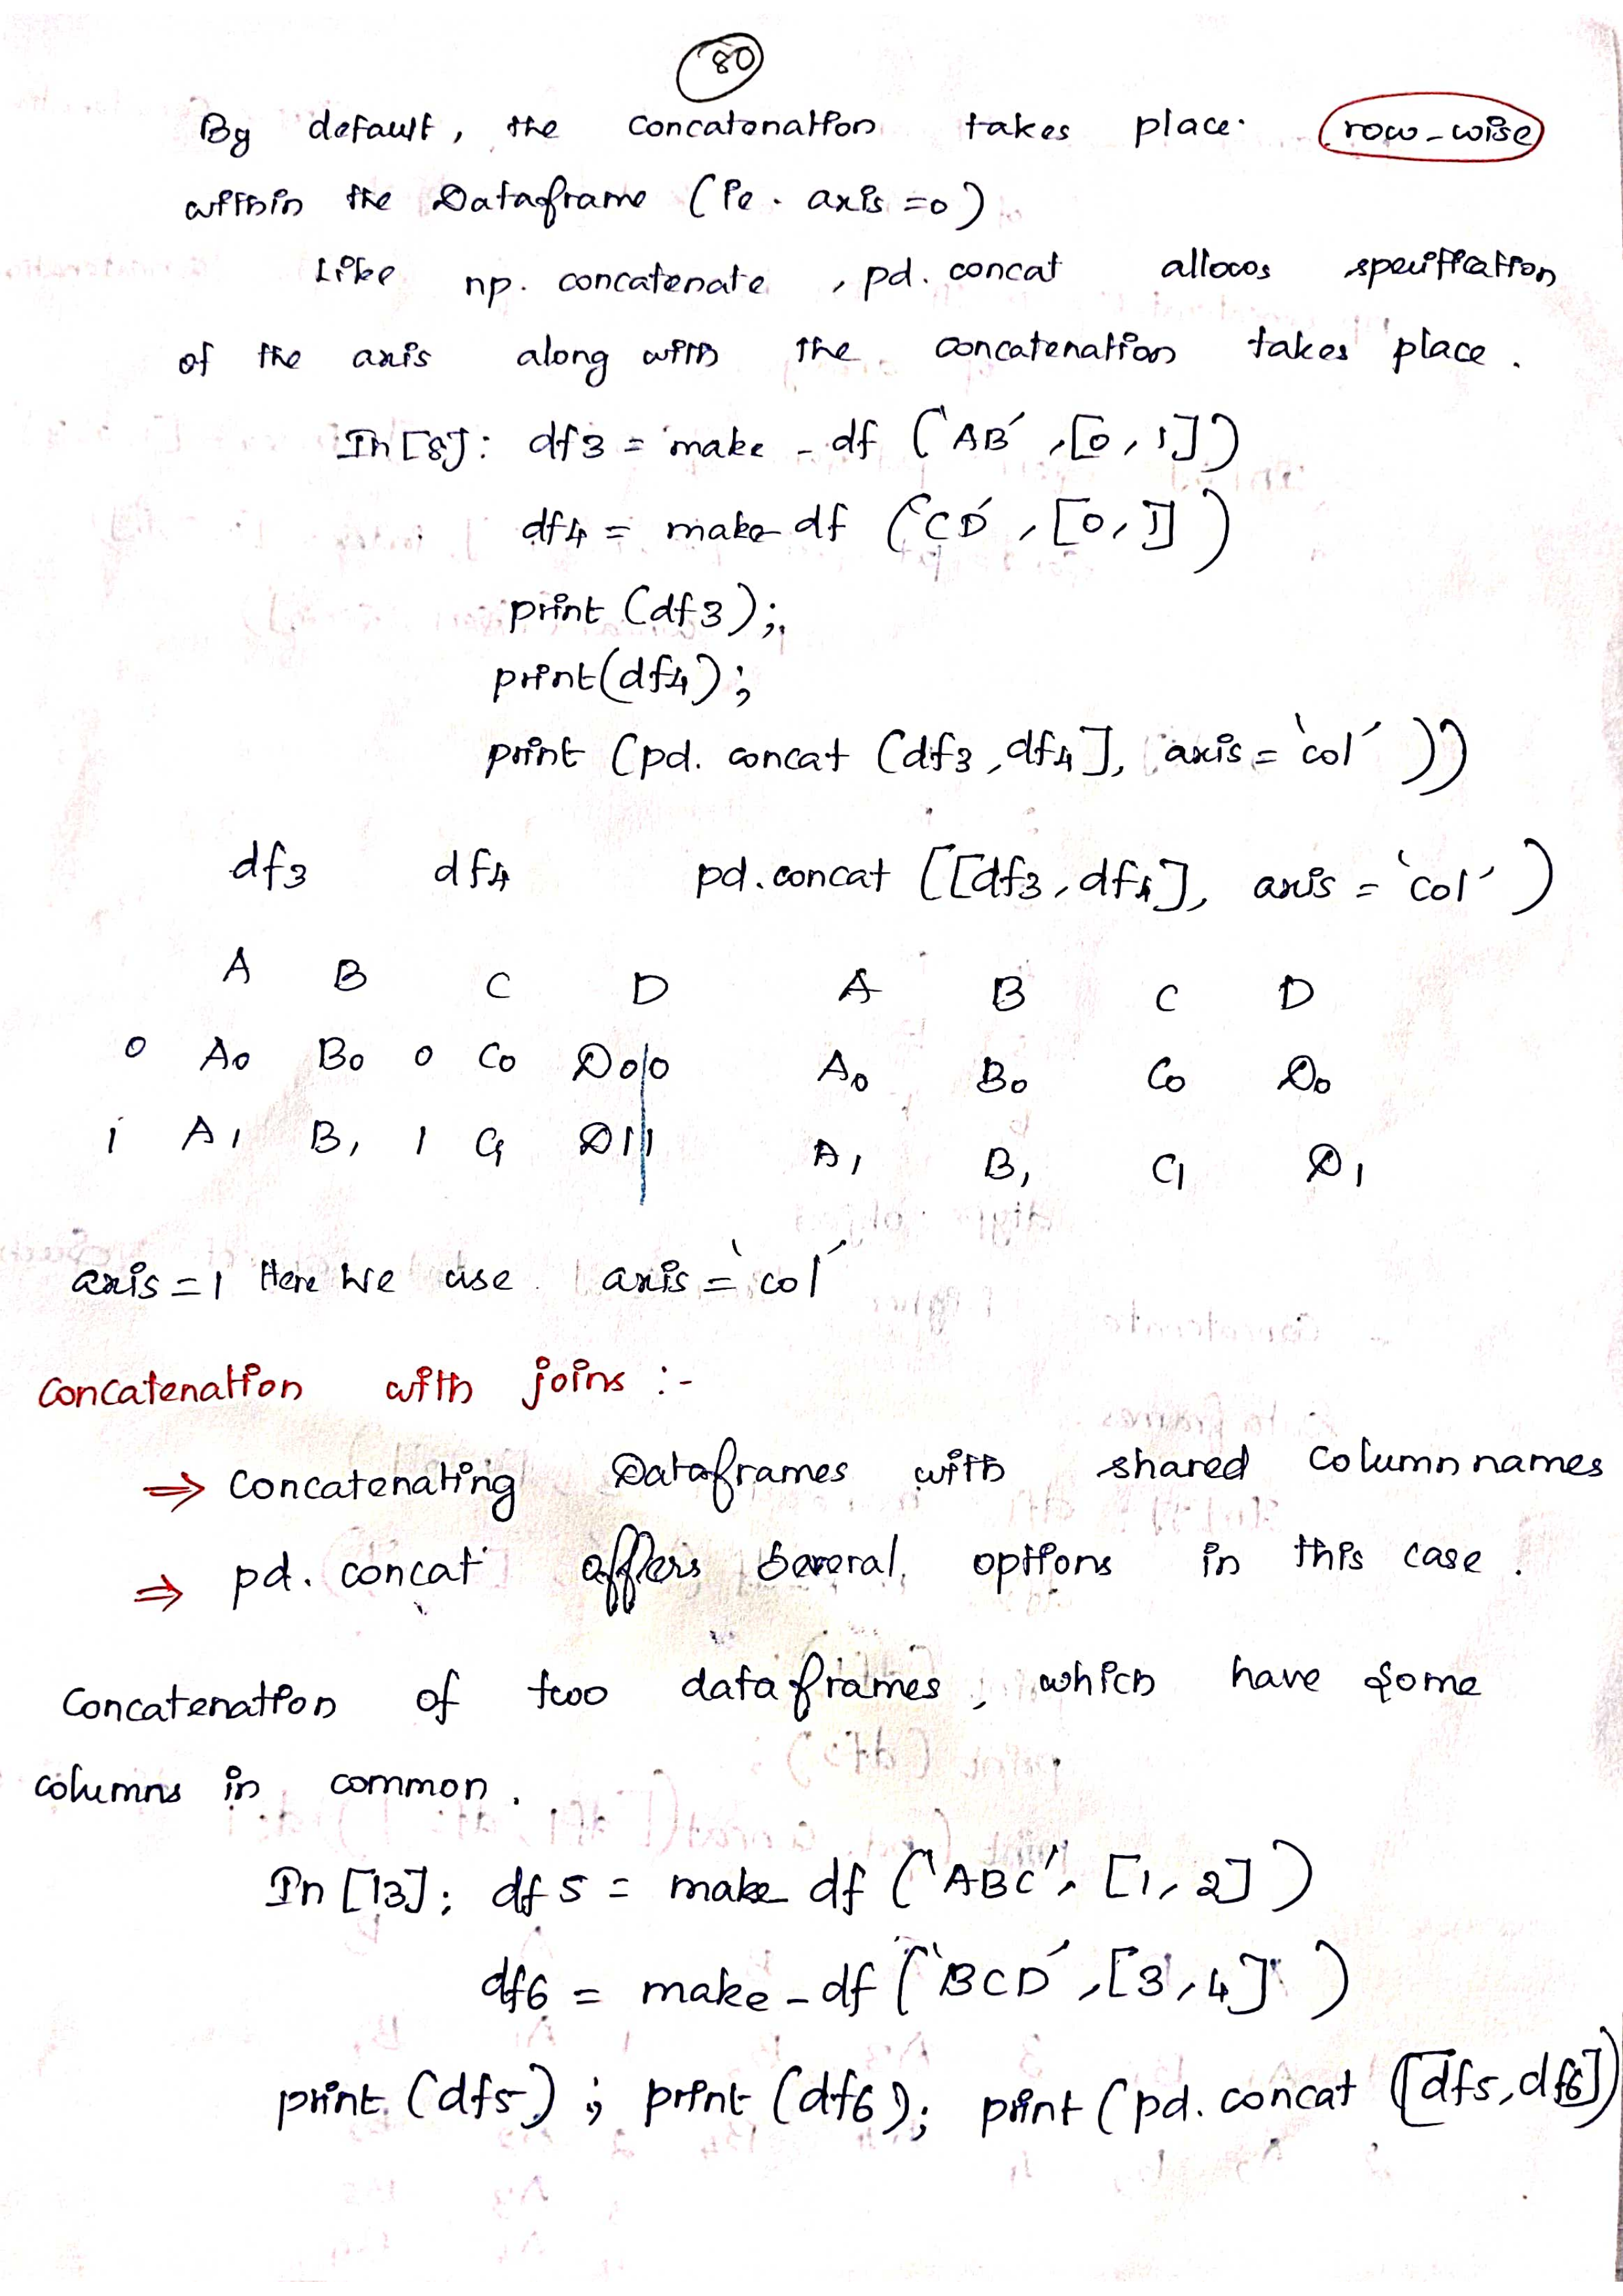 80
By default, the concatonation takes place. row-wise
within the Dataframe (ie. axis =0)
Like np. concatenate, pd. concat allows speciffication
of the axis along with the concatenation takes place.
In [8]: df3 = make - df ('AB', [0, 1])
df4 = make df ('CD', [0, 1])
print (df3);
print(df4);
print (pd. concat (df3, df4], axis = 'col'))
df3 df4 pd.concat ([df3, df4], axis = 'col')
A B C D A B C D
0 A0 B0 0 C0 D0|0 A0 B0 C0 D0
1 A1 B1 1 C1 D1|1 A1 B1 C1 D1
axis = 1 Here We use axis = 'col'
Concatenation with joins :-
⇒ Concatenating Dataframes with shared Column names
⇒ pd. concat offers several options in this case.
Concatenation of two dataframes, which have some
columns in common.
In [13]: df5 = make df ('ABC', [1, 2])
df6 = make - df ('BCD', [3, 4])
print (df5); print (df6); print (pd. concat ([df5, df6])